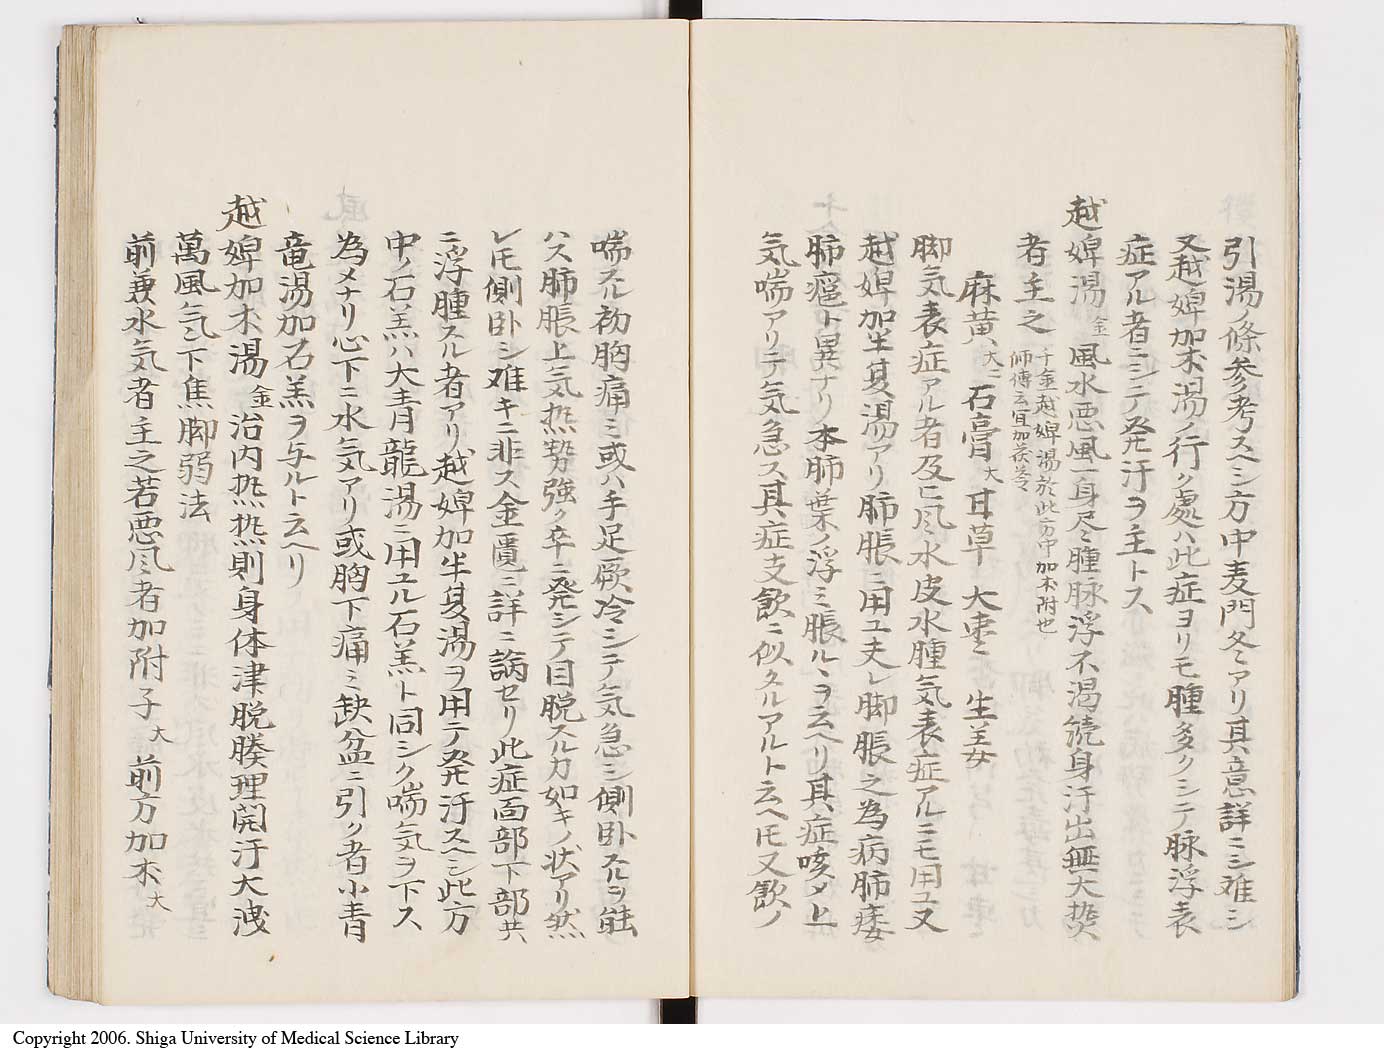 引湯ノ條參考スヘシ方中麦門冬アリ其意詳ニシ难シ
又越婢加朮湯ノ行ク處ハ此症ヨリモ腫多クシテ脉浮表
症アル者ニシテ発汗ヲ主トス
越婢湯 金 風水悪風一身尽ク腫脉浮不渇続身汗出無大热
者主之 千金越婢湯於此方中加朮附也
師傳云宜加茯苓
麻黄 大 石膏 大 甘草 大枣 生姜
脚気表症アル者及ヒ风水皮水腫気表症アルニモ用ユ又
越婢加半夏湯アリ肺脹ニ用ユ夫レ脚脹之為病肺痿
肺癰ト異ナリ本肺葉ノ浮ミ脹ルヽヲ云ヘリ其症咳メ上
気喘アリテ気急ス其症支飲ニ似タルアルト云ヘ𪜈又飲ノ
喘スル初胸痛ミ或ハ手足厥冷シテ気急シ側卧スルヿ能
ハス肺脹上気热勢強ク卒ニ発シテ目脱スル力如キノ状アリ然
レ𪜈側卧シ难キニ非ス金匱ニ詳ニ論セリ此症面部下部共
ニ浮腫スル者アリ越婢加半夏湯ヲ用テ発汗スヘシ此方
中ノ石羔ハ大青龍湯ニ用ユル石羔ト同シク喘気ヲ下ス
為メナリ心下ニ水気アリ或胸下痛ミ缺盆ニ引ク者小青
竜湯加石羔ヲ与ルト云ヘリ
越婢加朮湯 金 治内热热則身体津脱腠理開汗大洩
萬風気 下焦脚弱法
前兼水気者主之若悪风者加附子 大 前方加朮 大
Copyright 2006. Shiga University of Medical Science Library